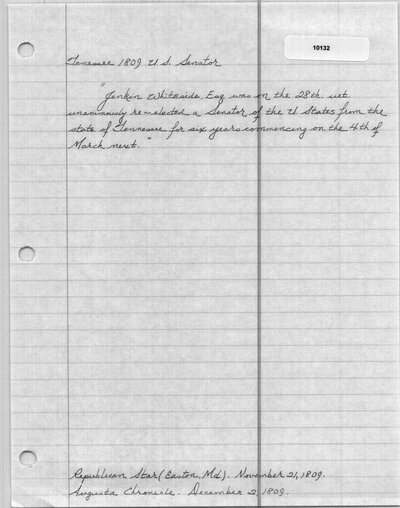 10132
Tenessee 1809 U.S. Senator
"Jenkin Whiteside, Esq was on the 28th. ult.
unanimously re-elected a Senator of the U States from the
state of Tennessee for six years commencing on the 4th of
March next."
Republican Star (Easton, Md). November 21, 1809.
Augusta Chronicle. December 2, 1809.